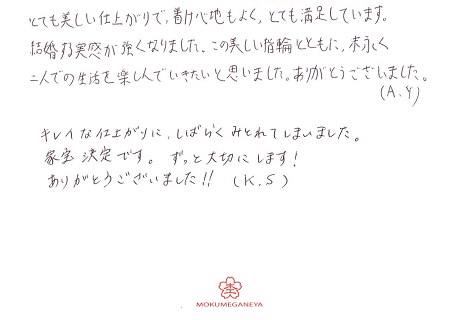 とても美しい仕上がりで、着け心地もよく、とても満足しています。
結婚する実感が強くなりました。この美しい指輪とともに、末永く
二人での生活を楽しんでいきたいと思いました。ありがとうございました。
(A.Y)
キレイな仕上がりに、しばらくみとれてしまいました。
家宝決定です。ずっと大切にします!
ありがとうございました!! (K.S)
MOKUMEGANEYA